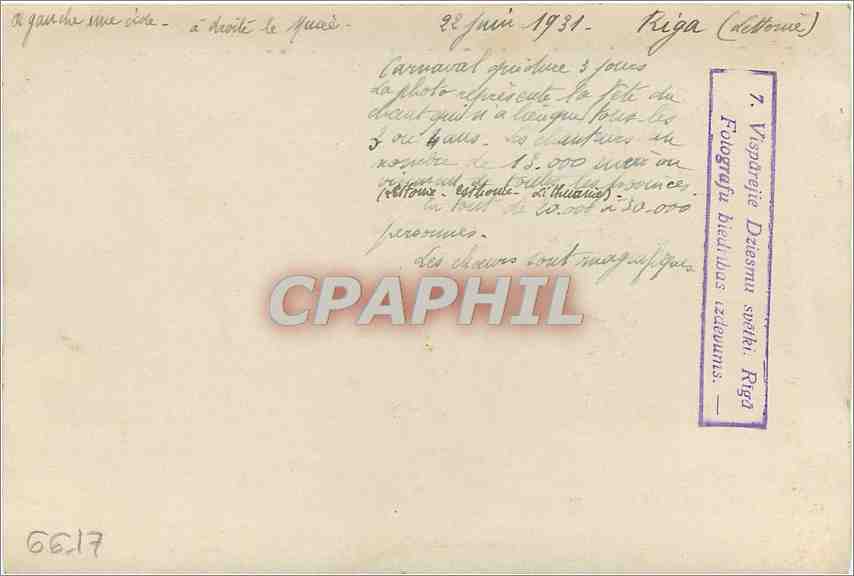 à gauche une aide - à droite le Musée - 22 Juin 1931 - Riga (Lettonie)
Carnaval qui dure 3 jours
La photo représente la Fête du
chant qui n'a lieu que tous les
3 ou 4 ans. Les chanteurs au
nombre de 15.000 environ
viennent de toutes les provinces
(Lettonie - Esthonie - Lithuanie) -
En tout de 20.000 à 30.000
personnes.
Les chœurs sont magnifiques
7. Vispārejie Dziesmu svētki. Rīgā
Fotografu biedrības izdevums. —
CPAPHIL
6617